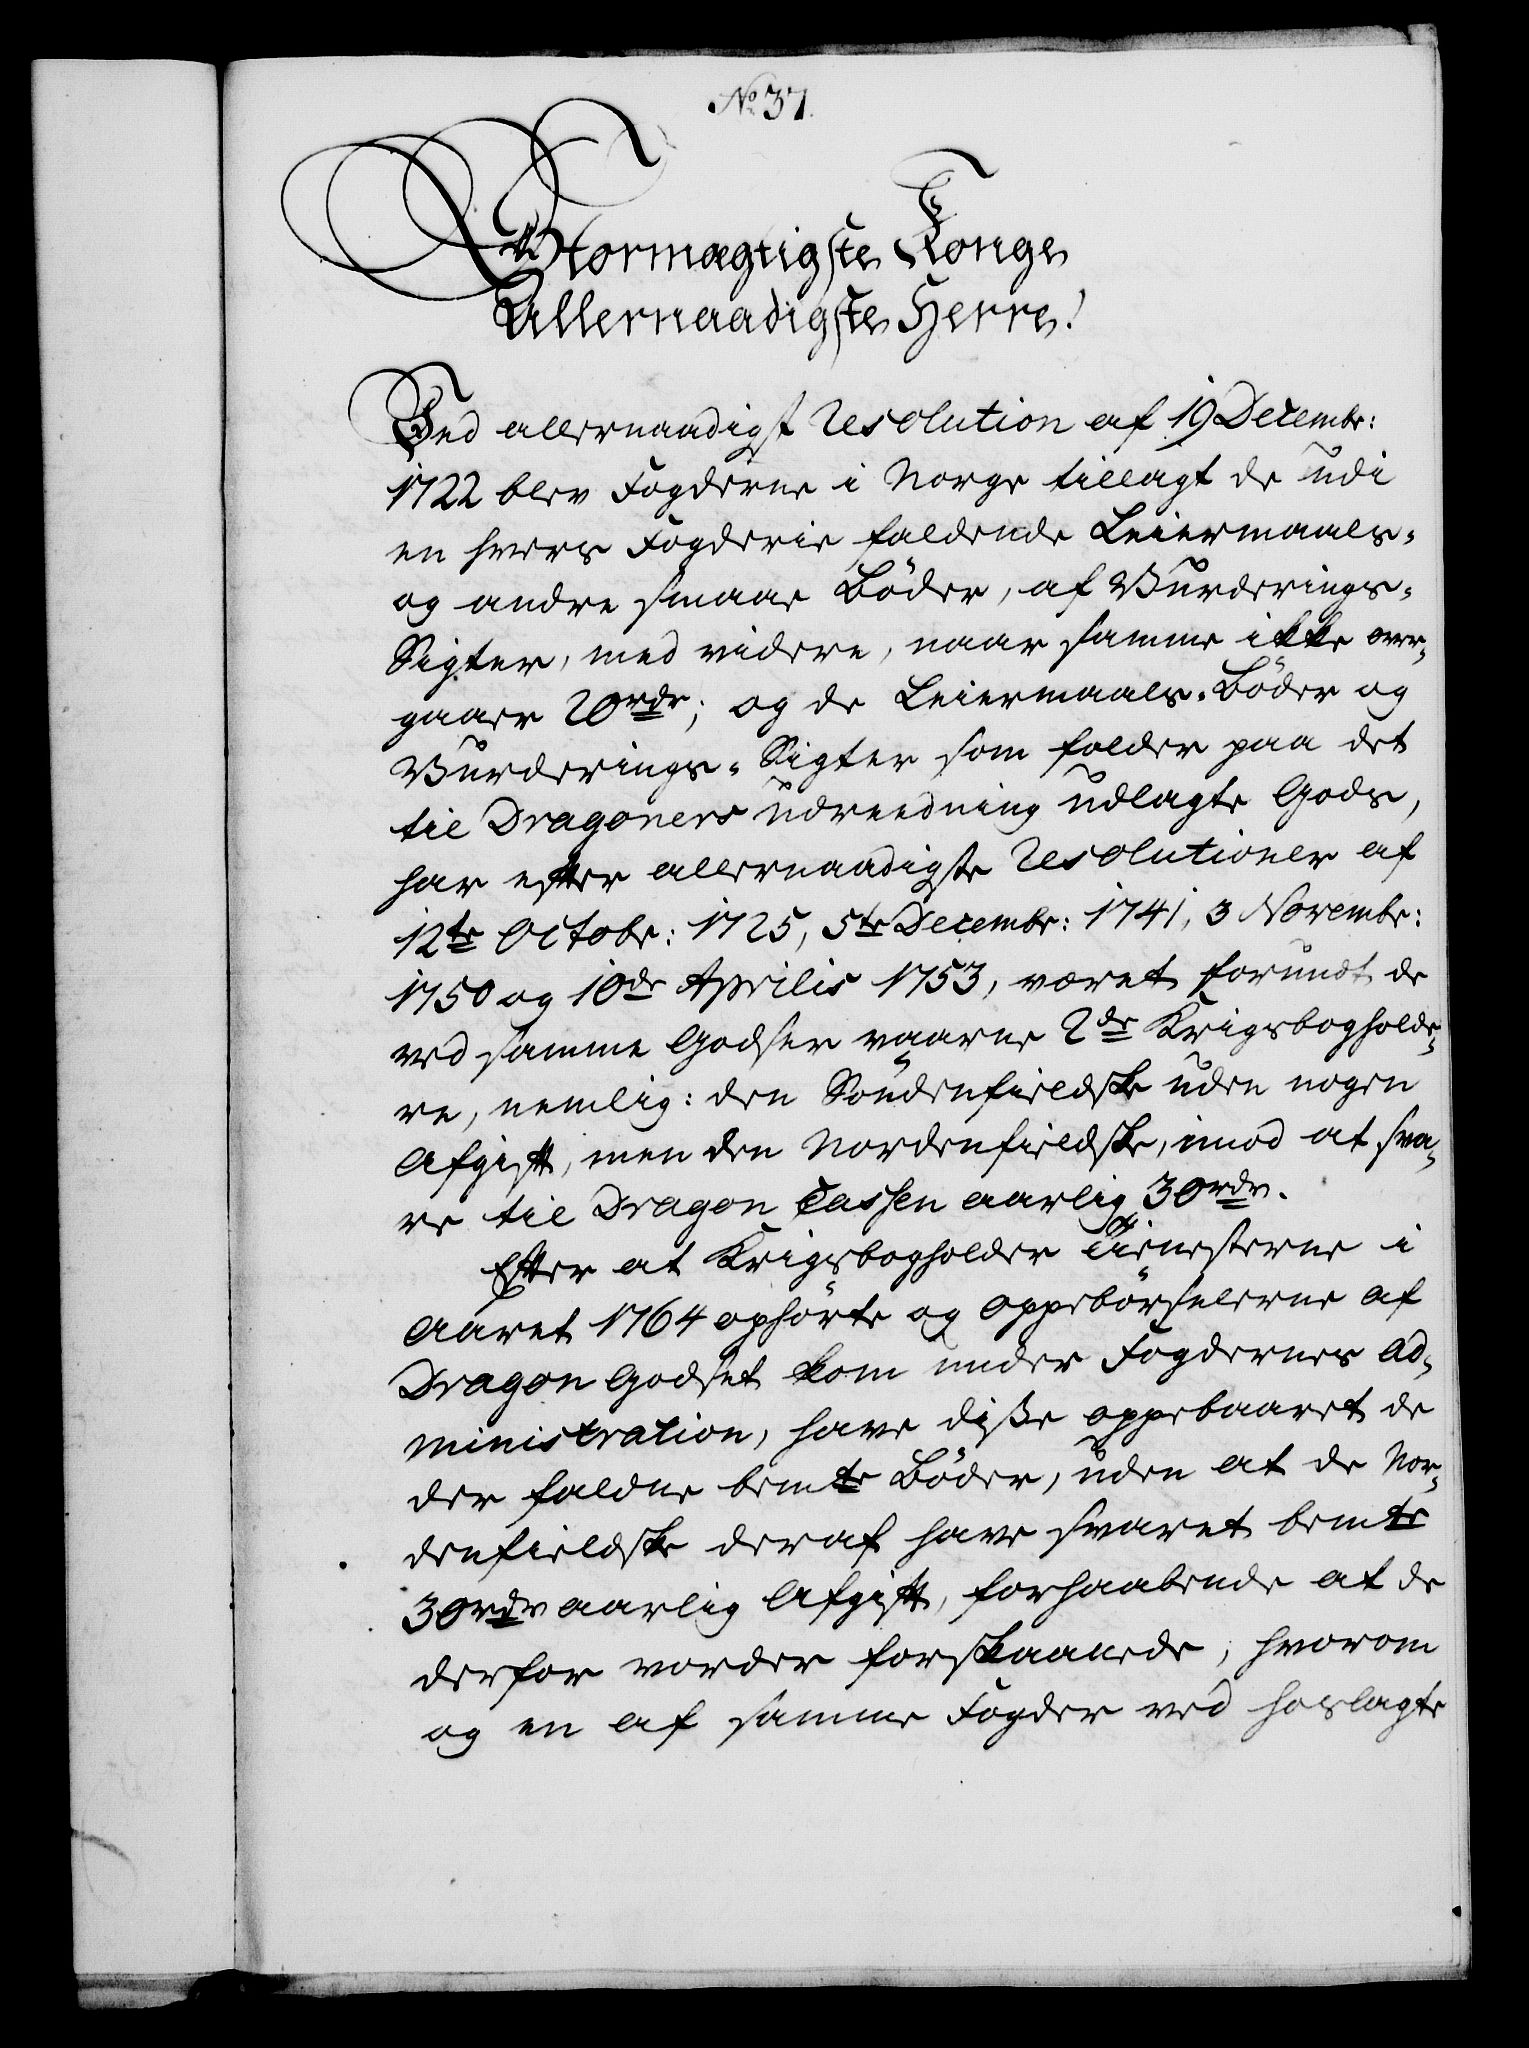 No 37.
Stormægtigste Konge
Allernaadigste Herre!
Ved allernaadigst Resolution af 19 Decembr:
1722 blev Fogderne i Norge tillagt de udi
en hvers Fogderie faldende Leiermaals-
og andre smaae Böder, af Vurderings-
Sigter, med videre, naar samme ikke over-
gaaer 20 rdr; og de Leiermaals-Böder og
Vurderings-Sigter som falder paa det
til Dragoners udreedning udlagte Gods,
har efter allernaadigste Resolutioner af
12te Octobr: 1725, 5te Decembr: 1741, 3 Novembr:
1750 og 10de Aprilis 1753, været forundt de
ved samme Godser værende 2de Krigsbogholde-
re, nemlig: den Söndenfieldske uden nogen
Afgift, men den Nordenfieldske, imod at sva-
re til Dragon Cassen aarlig 30 rdr.
Efter at Krigsbogholder Tienesterne i
Aaret 1764 ophörte og Oppebörselerne af
Dragon Godset kom under Fogdernes Ad-
ministration, have disse oppebaaret de
der faldne bemte Böder, uden at de Nor-
denfieldske deraf have svaret bemte
30 rdr aarlig Afgift, forhaabende at de
derfor vorder forskaanede, hvorom
og en af samme Fogder ved hoslagte